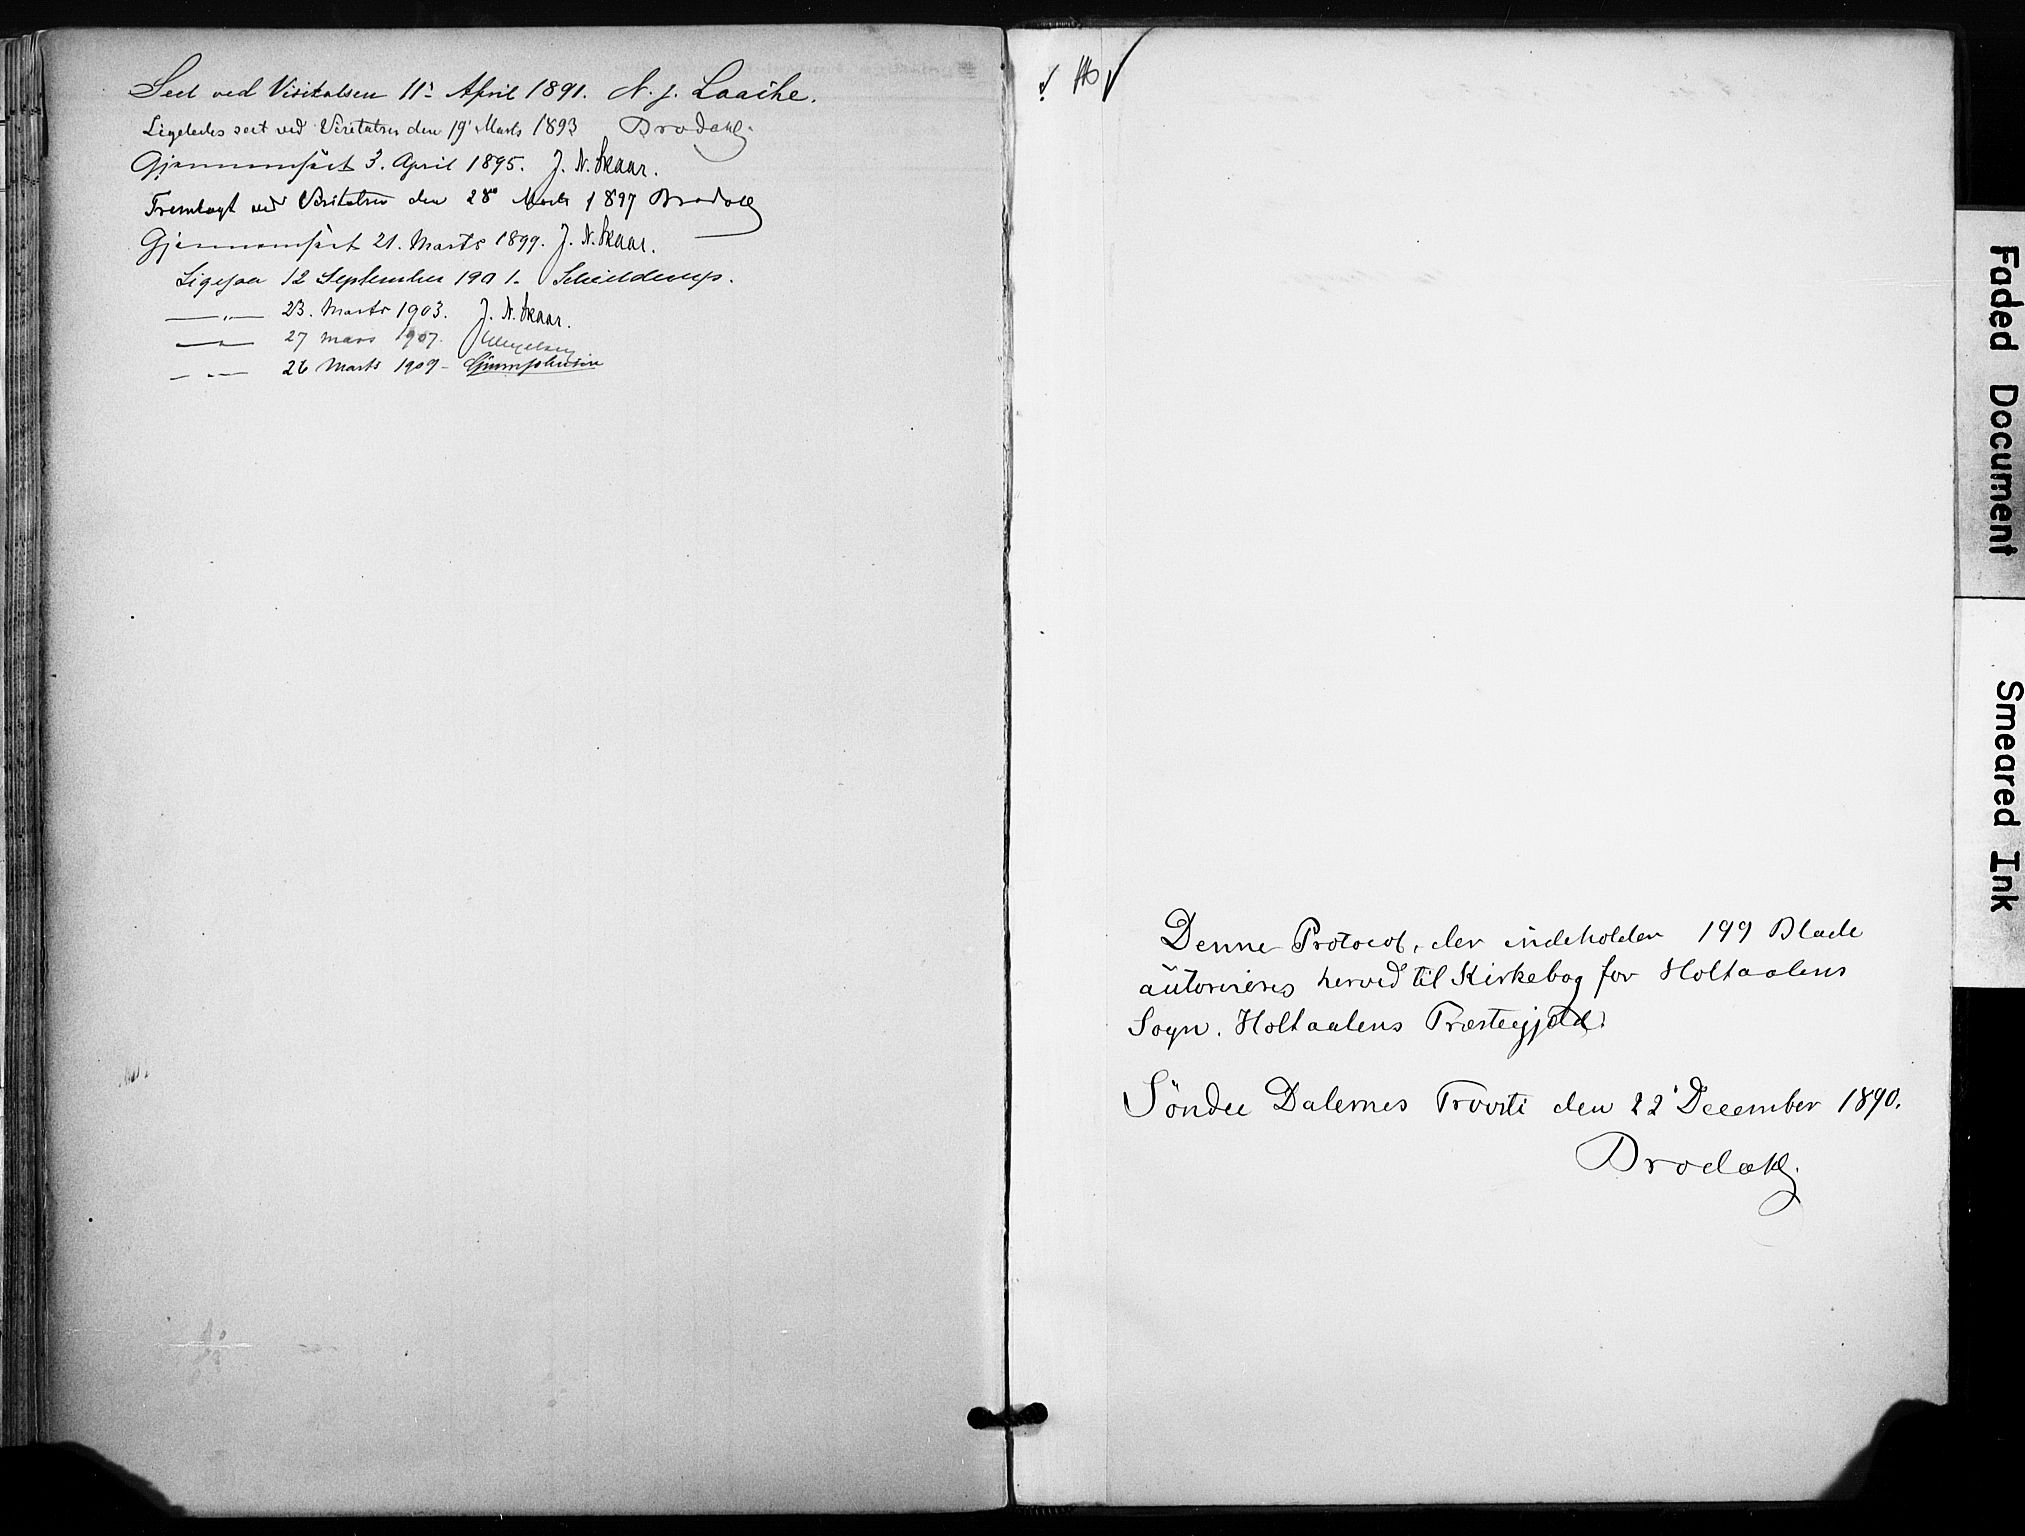 Seet ved Visitatsen 11te April 1891. N. J. Laache.
Ligeledes seet ved Visitatsen den 19' Marts 1893 Brodahl.
Gjennemført 3. April 1895. J. N. Skaar.
Fremlagt ved Visitatsen den 28de Marts 1897 Brodahl
Gjennemført 21. Marts 1899. J. N. Skaar.
Ligesaa 12 September 1901. Schielderup.
—„— 23. Marts 1903. J. N. Skaar.
—„— 27 mars 1907.
—„— 26 Marts 1909 -
Denne Protocol, der indeholder 199 Blade
autoriseres herved til Kirkebog for Holtaalens
Sogn. Holtaalens Præstegjeld.
Søndre Dalernes Provsti den 22' December 1890.
Brodahl.
Faded Document
Smeared Ink